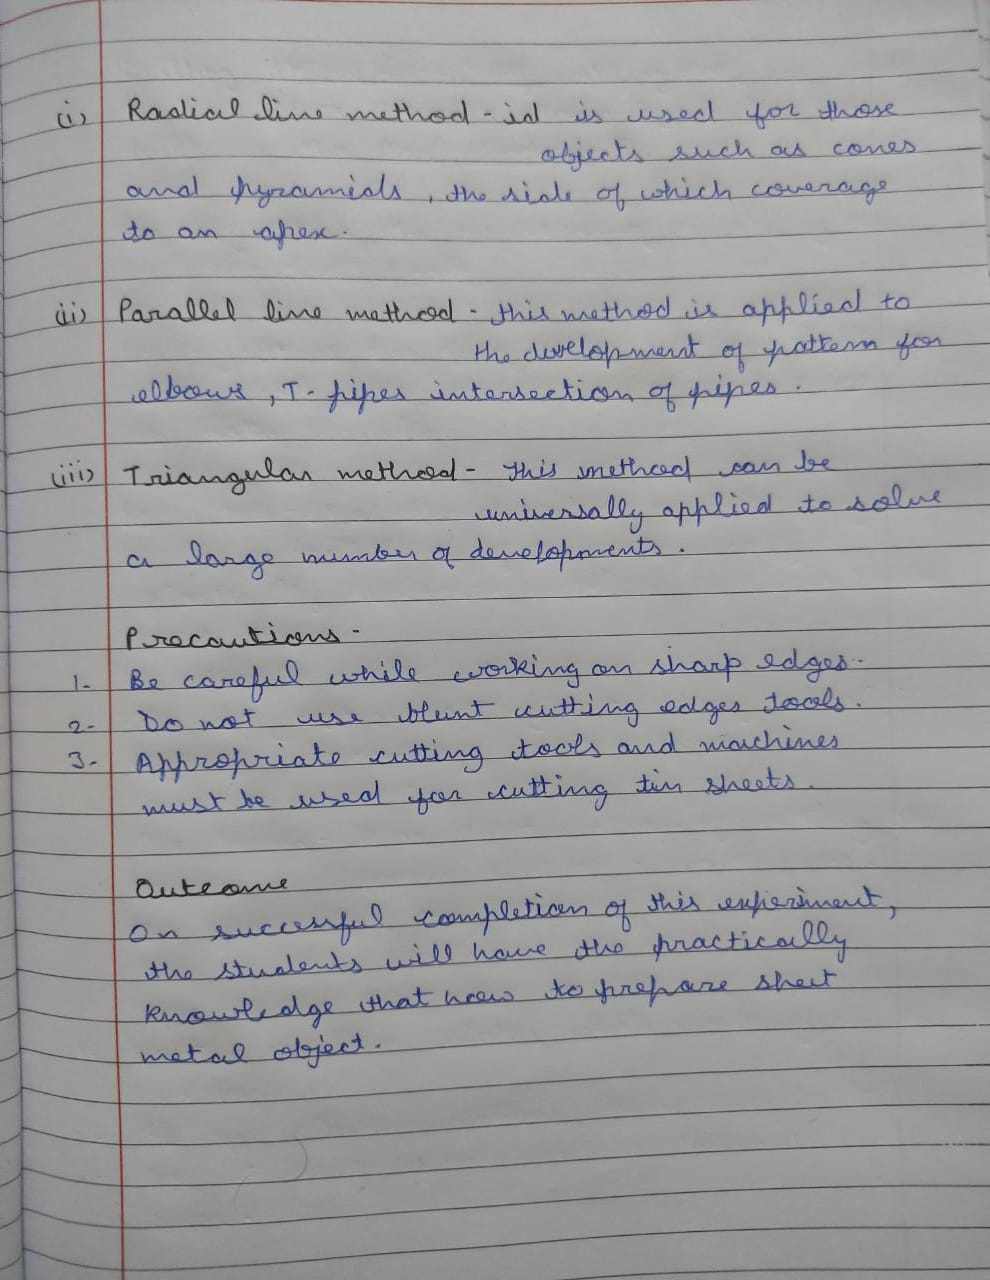 (i) Radical line method - id is used for those
objects such as cones
and pyramids, the side of which coverage
to an apex.
(ii) Parallel line method - this method is applied to
the development of pattern for
elbows, T-pipes intersection of pipes.
(iii) Triangular method - this method can be
universally applied to solve
a large number of developments.
Precautions -
1. Be careful while working on sharp edges.
2. Do not use blunt cutting edges tools.
3. Appropriate cutting tools and machines
must be used for cutting tin sheets.
Outcome
On successful completion of this experiment,
the students will have the practically
knowledge that how to prepare sheet
metal object.